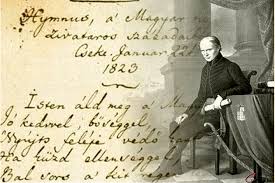 Hymnus, a' Magyar n
zivataros századai
Cseke, Januar. 22d
1823
Isten áld meg a' Ma
Jó kedvvel, bőséggel
Nyújts feléje védő ka
Ha küzd ellenséggel
Bal sors a' kit régen